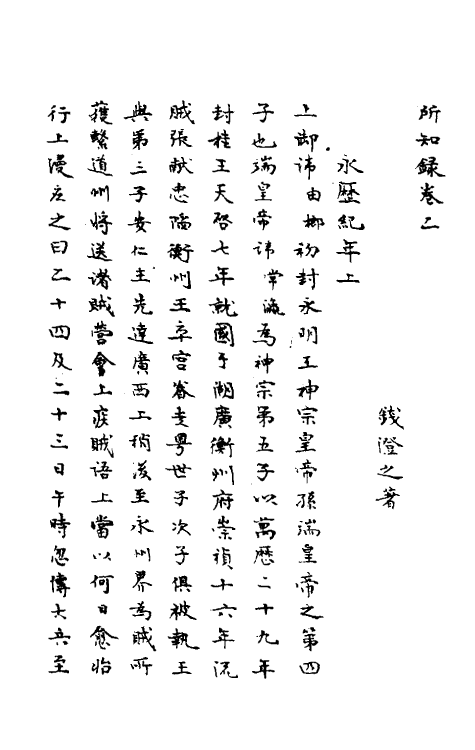 所知録卷二
錢澄之著
永歷紀年上
上御諱由榔初封永明王神宗皇帝孫端皇帝之第四
子也端皇帝諱常瀛為神宗第五子以萬歷二十九年
封桂王天啓七年就國于湖廣衡州府崇禎十六年流
賊張献忠陷衡州王率宫眷走粤世子次子俱被執王
與第三子安仁王先達廣西上稍後至永州界為賊所
獲繫道州將送諸賊營會上疾賊語上當以何日愈怡
行上漫应之曰乙十四及二十三日午時忽傳大兵至